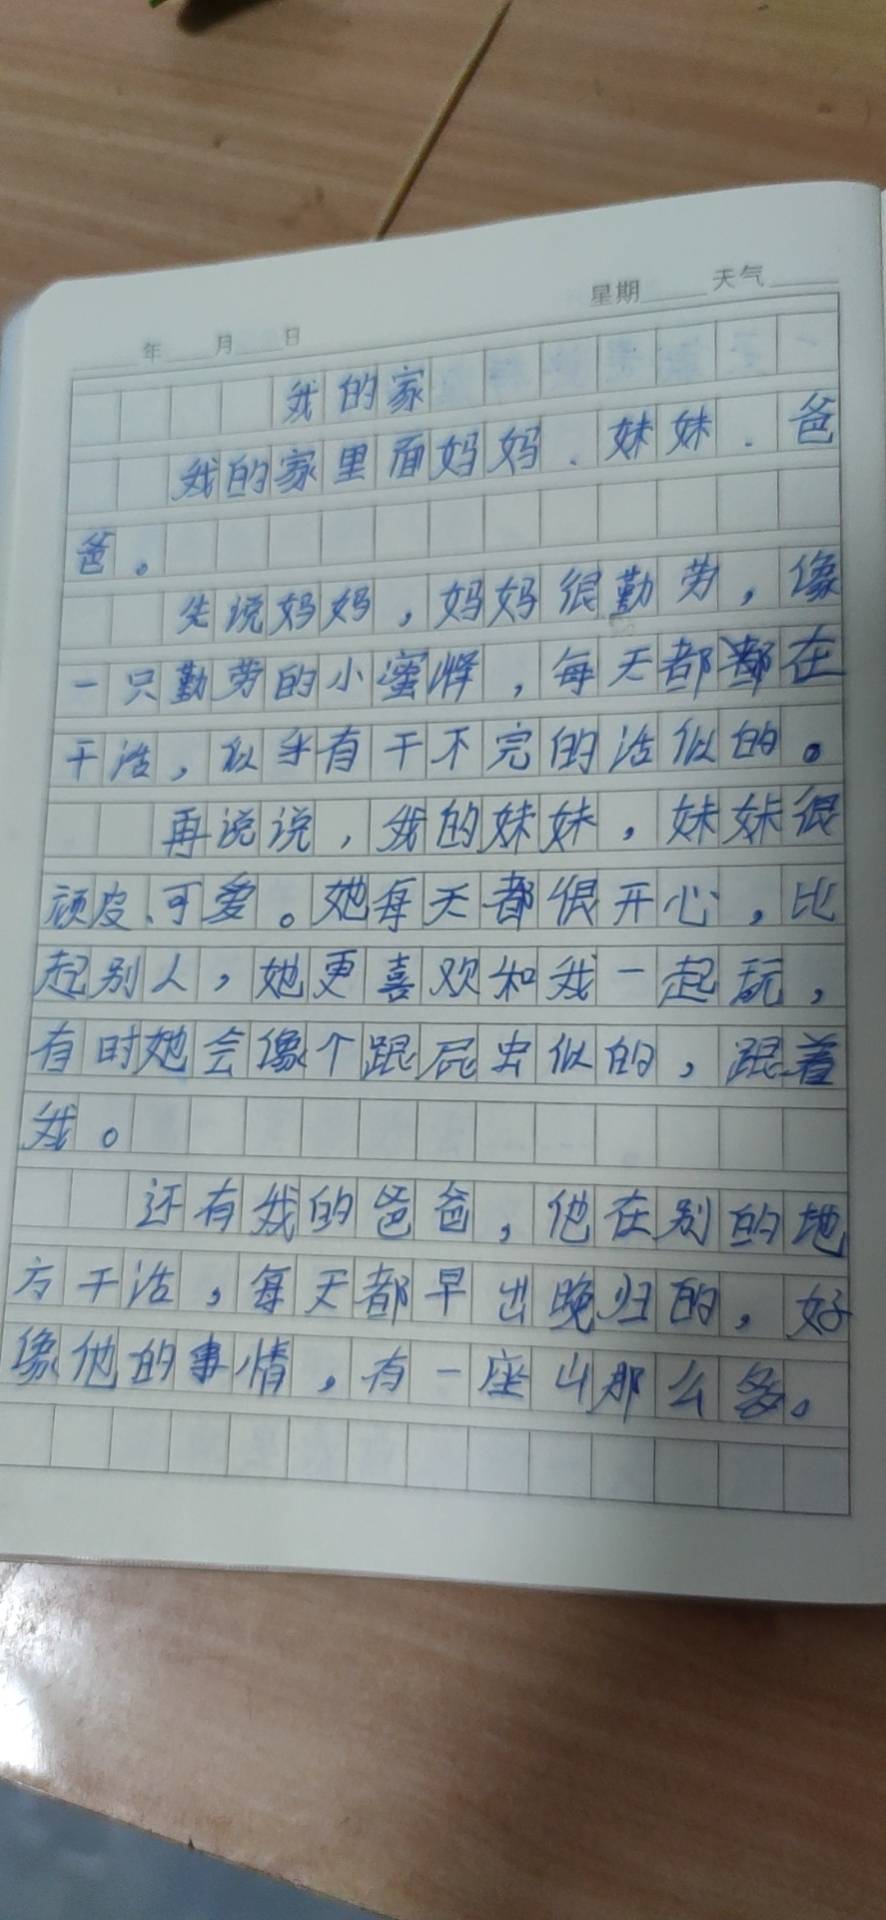 年 月 日 星期 天气
我的家
我的家里面妈妈、妹妹、爸
爸。
先说妈妈，妈妈很勤劳，像
一只勤劳的小蜜蜂，每天都在
干活，似乎有干不完的活似的。
再说说，我的妹妹，妹妹很
顽皮、可爱。她每天都很开心，比
起别人，她更喜欢和我一起玩，
有时她会像个跟屁虫似的，跟着
我。
还有我的爸爸，他在别的地
方干活，每天都早出晚归的，好
像他的事情，有一座山那么多。